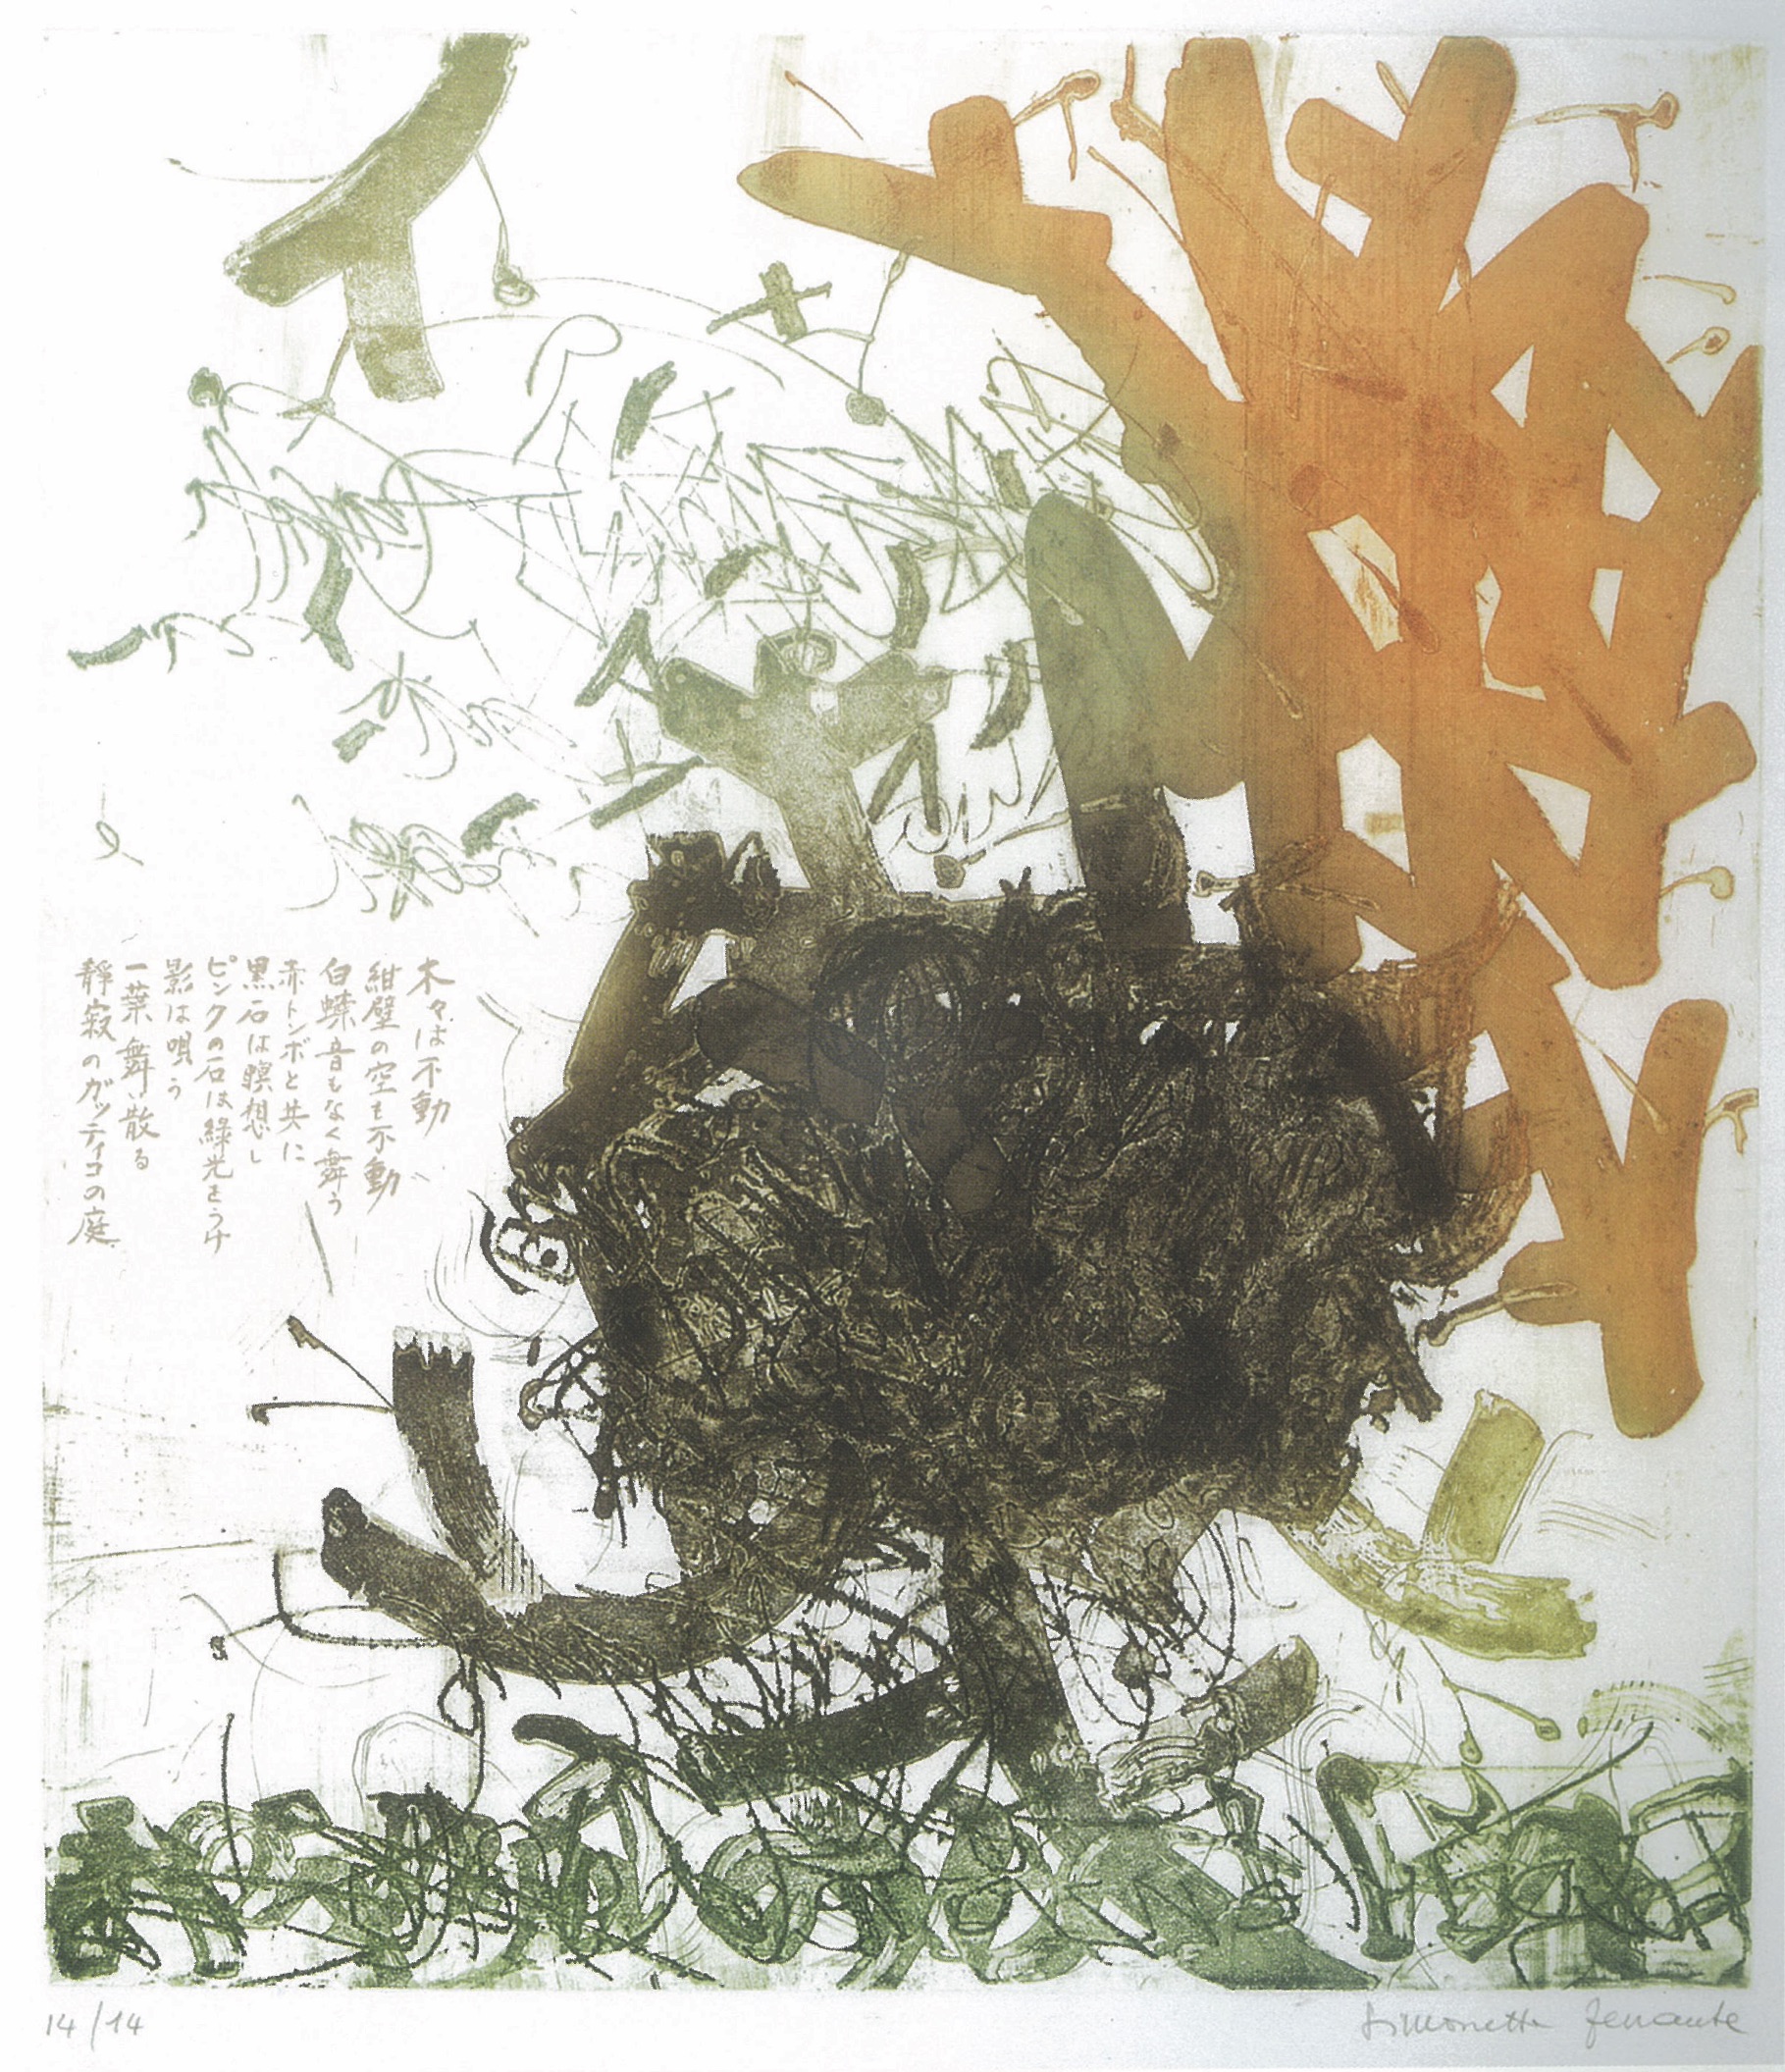 木々は不動
紺壁の空も不動
白蝶音もなく舞う
赤トンボと共に
黒石は瞑想し
ピンクの石は緑光をうけ
影は唄う
一葉舞い散る
靜寂のガッティコの庭
14/14
Simonetta Ferrante